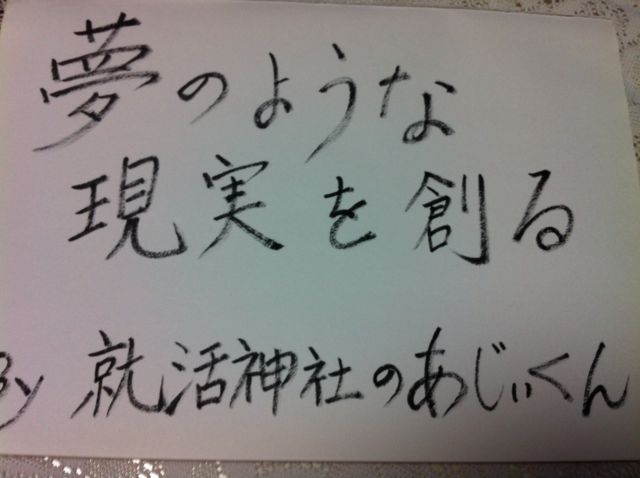 夢のような
現実を創る
By 就活神社のあじぃくん